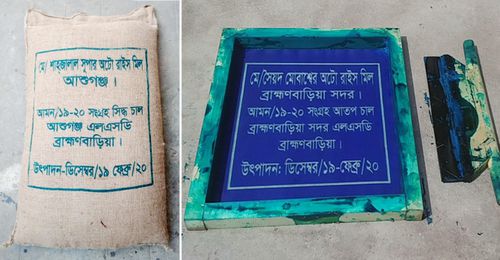 মে/ শাহজালাল সুপার অটো রাইস মিল
আশুগঞ্জ।
আমন/১৯-২০ সংগ্রহ সিদ্ধ চাল
আশুগঞ্জ এলএসডি
ব্রাহ্মণবাড়িয়া।
উৎপাদন-ডিসেম্বর/১৯ ফেব্রু/২০
মে/সৈয়দ মোবাশ্বের অটো রাইস মিল
ব্রাহ্মণবাড়িয়া সদর।
আমন/১৯-২০ সংগ্রহ আতপ চাল
ব্রাহ্মণবাড়িয়া সদর এলএসডি
ব্রাহ্মণবাড়িয়া।
উৎপাদন: ডিসেম্বর/১৯-ফেব্রু/২০